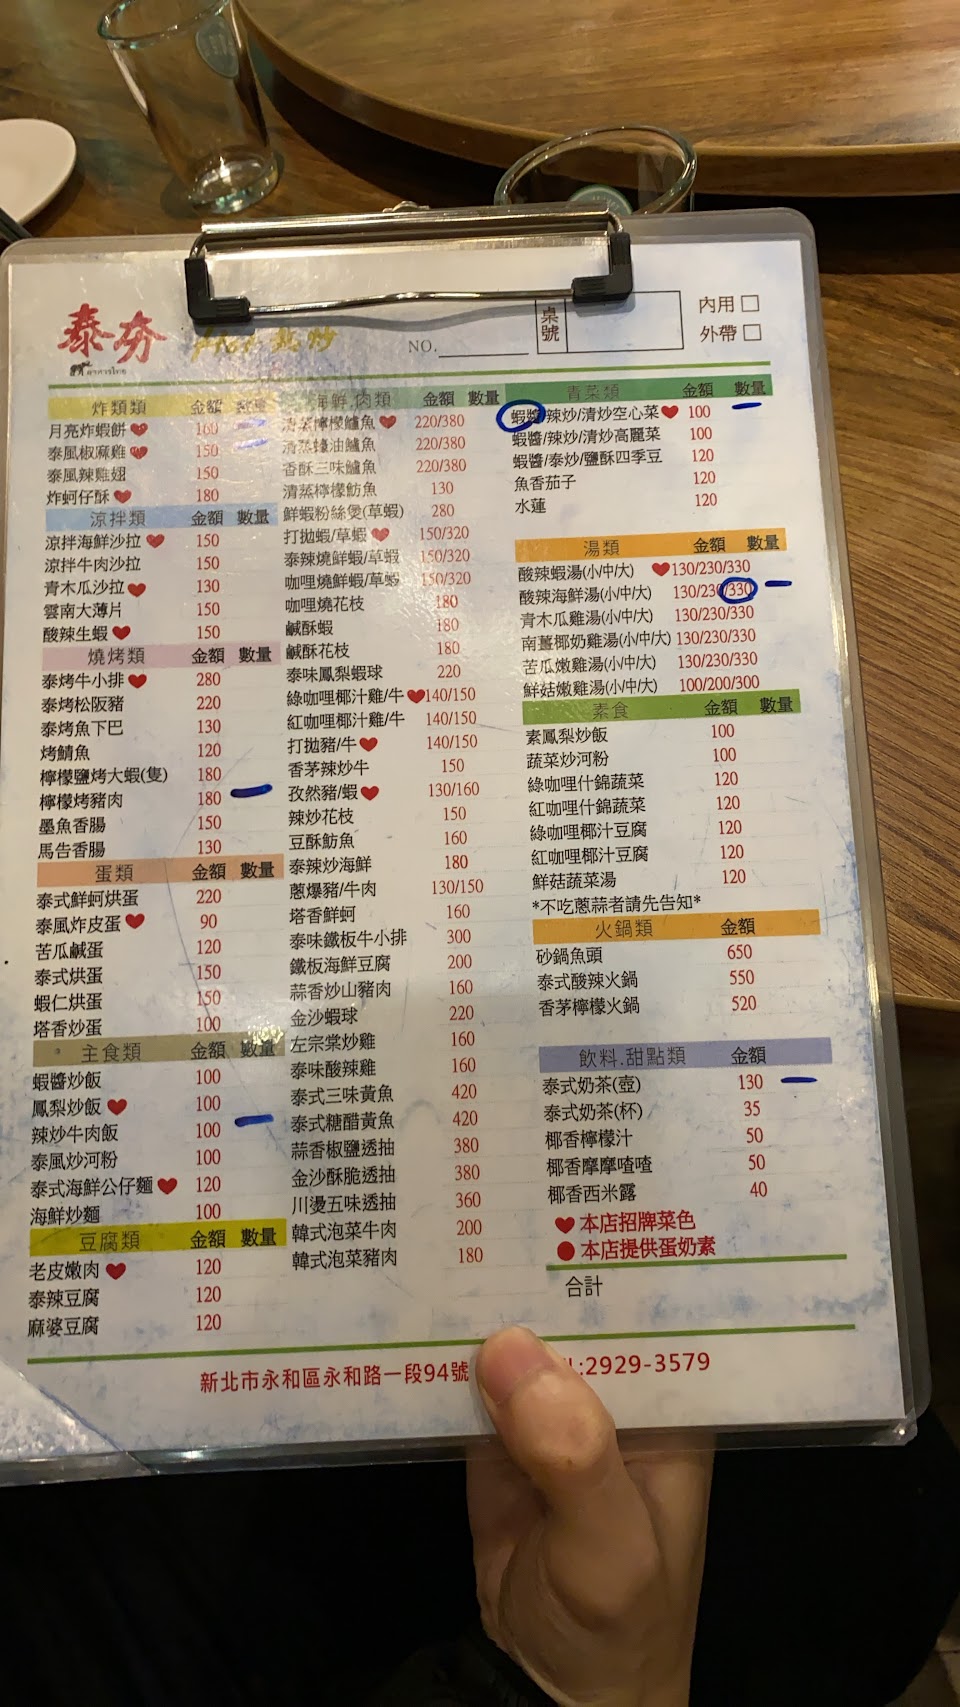 泰夯
NO.
桌號
內用
外帶
炸類類 金額 數量
月亮炸蝦餅 160
泰風椒麻雞 150
泰風辣雞翅 150
炸蚵仔酥 180
涼拌類 金額 數量
涼拌海鮮沙拉 150
涼拌牛肉沙拉 150
青木瓜沙拉 130
雲南大薄片 150
酸辣生蝦 150
燒烤類 金額 數量
泰烤牛小排 280
泰烤松阪豬 220
泰烤魚下巴 130
烤鯖魚 120
檸檬鹽烤大蝦(隻) 180
檸檬烤豬肉 180
墨魚香腸 150
馬告香腸 130
蛋類 金額 數量
泰式鮮蚵烘蛋 220
泰風炸皮蛋 90
苦瓜鹹蛋 120
泰式烘蛋 150
蝦仁烘蛋 150
塔香炒蛋 100
主食類 金額 數量
蝦醬炒飯 100
鳳梨炒飯 100
辣炒牛肉飯 100
泰風炒河粉 100
泰式海鮮公仔麵 120
海鮮炒麵 100
豆腐類 金額 數量
老皮嫩肉 120
泰辣豆腐 120
麻婆豆腐 120
海鮮.肉類 金額 數量
清蒸檸檬鱸魚 220/380
清蒸蠔油鱸魚 220/380
香酥三味鱸魚 220/380
清蒸檸檬魴魚 130
鮮蝦粉絲煲(草蝦) 280
打拋蝦/草蝦 150/320
泰辣燒鮮蝦/草蝦 150/320
咖哩燒鮮蝦/草蝦 150/320
咖哩燒花枝 180
鹹酥蝦 180
鹹酥花枝 180
泰味鳳梨蝦球 220
綠咖哩椰汁雞/牛 140/150
紅咖哩椰汁雞/牛 140/150
打拋豬/牛 140/150
香茅辣炒牛 150
孜然豬/蝦 130/160
辣炒花枝 150
豆酥魴魚 160
泰辣炒海鮮 180
蔥爆豬/牛肉 130/150
塔香鮮蚵 160
泰味鐵板牛小排 300
鐵板海鮮豆腐 200
蒜香炒山豬肉 160
金沙蝦球 220
左宗棠炒雞 160
泰味酸辣雞 160
泰式三味黃魚 420
泰式糖醋黃魚 420
蒜香椒鹽透抽 380
金沙酥脆透抽 380
川燙五味透抽 360
韓式泡菜牛肉 200
韓式泡菜豬肉 180
青菜類 金額 數量
蝦醬/辣炒/清炒空心菜 100
蝦醬/辣炒/清炒高麗菜 100
蝦醬/泰炒/鹽酥四季豆 120
魚香茄子 120
水蓮 120
湯類 金額 數量
酸辣蝦湯(小/中/大) 130/230/330
酸辣海鮮湯(小/中/大) 130/230/330
青木瓜雞湯(小/中/大) 130/230/330
南薑椰奶雞湯(小/中/大) 130/230/330
苦瓜嫩雞湯(小/中/大) 130/230/330
鮮菇嫩雞湯(小/中/大) 100/200/300
素食 金額 數量
素鳳梨炒飯 100
蔬菜炒河粉 100
綠咖哩什錦蔬菜 120
紅咖哩什錦蔬菜 120
綠咖哩椰汁豆腐 120
紅咖哩椰汁豆腐 120
鮮菇蔬菜湯 120
*不吃蔥蒜者請先告知*
火鍋類 金額
砂鍋魚頭 650
泰式酸辣火鍋 550
香茅檸檬火鍋 520
飲料.甜點類 金額
泰式奶茶(壺) 130
泰式奶茶(杯) 35
椰香檸檬汁 50
椰香摩摩喳喳 50
椰香西米露 40
本店招牌菜色
本店提供蛋奶素
合計
新北市永和區永和路一段94號 :2929-3579